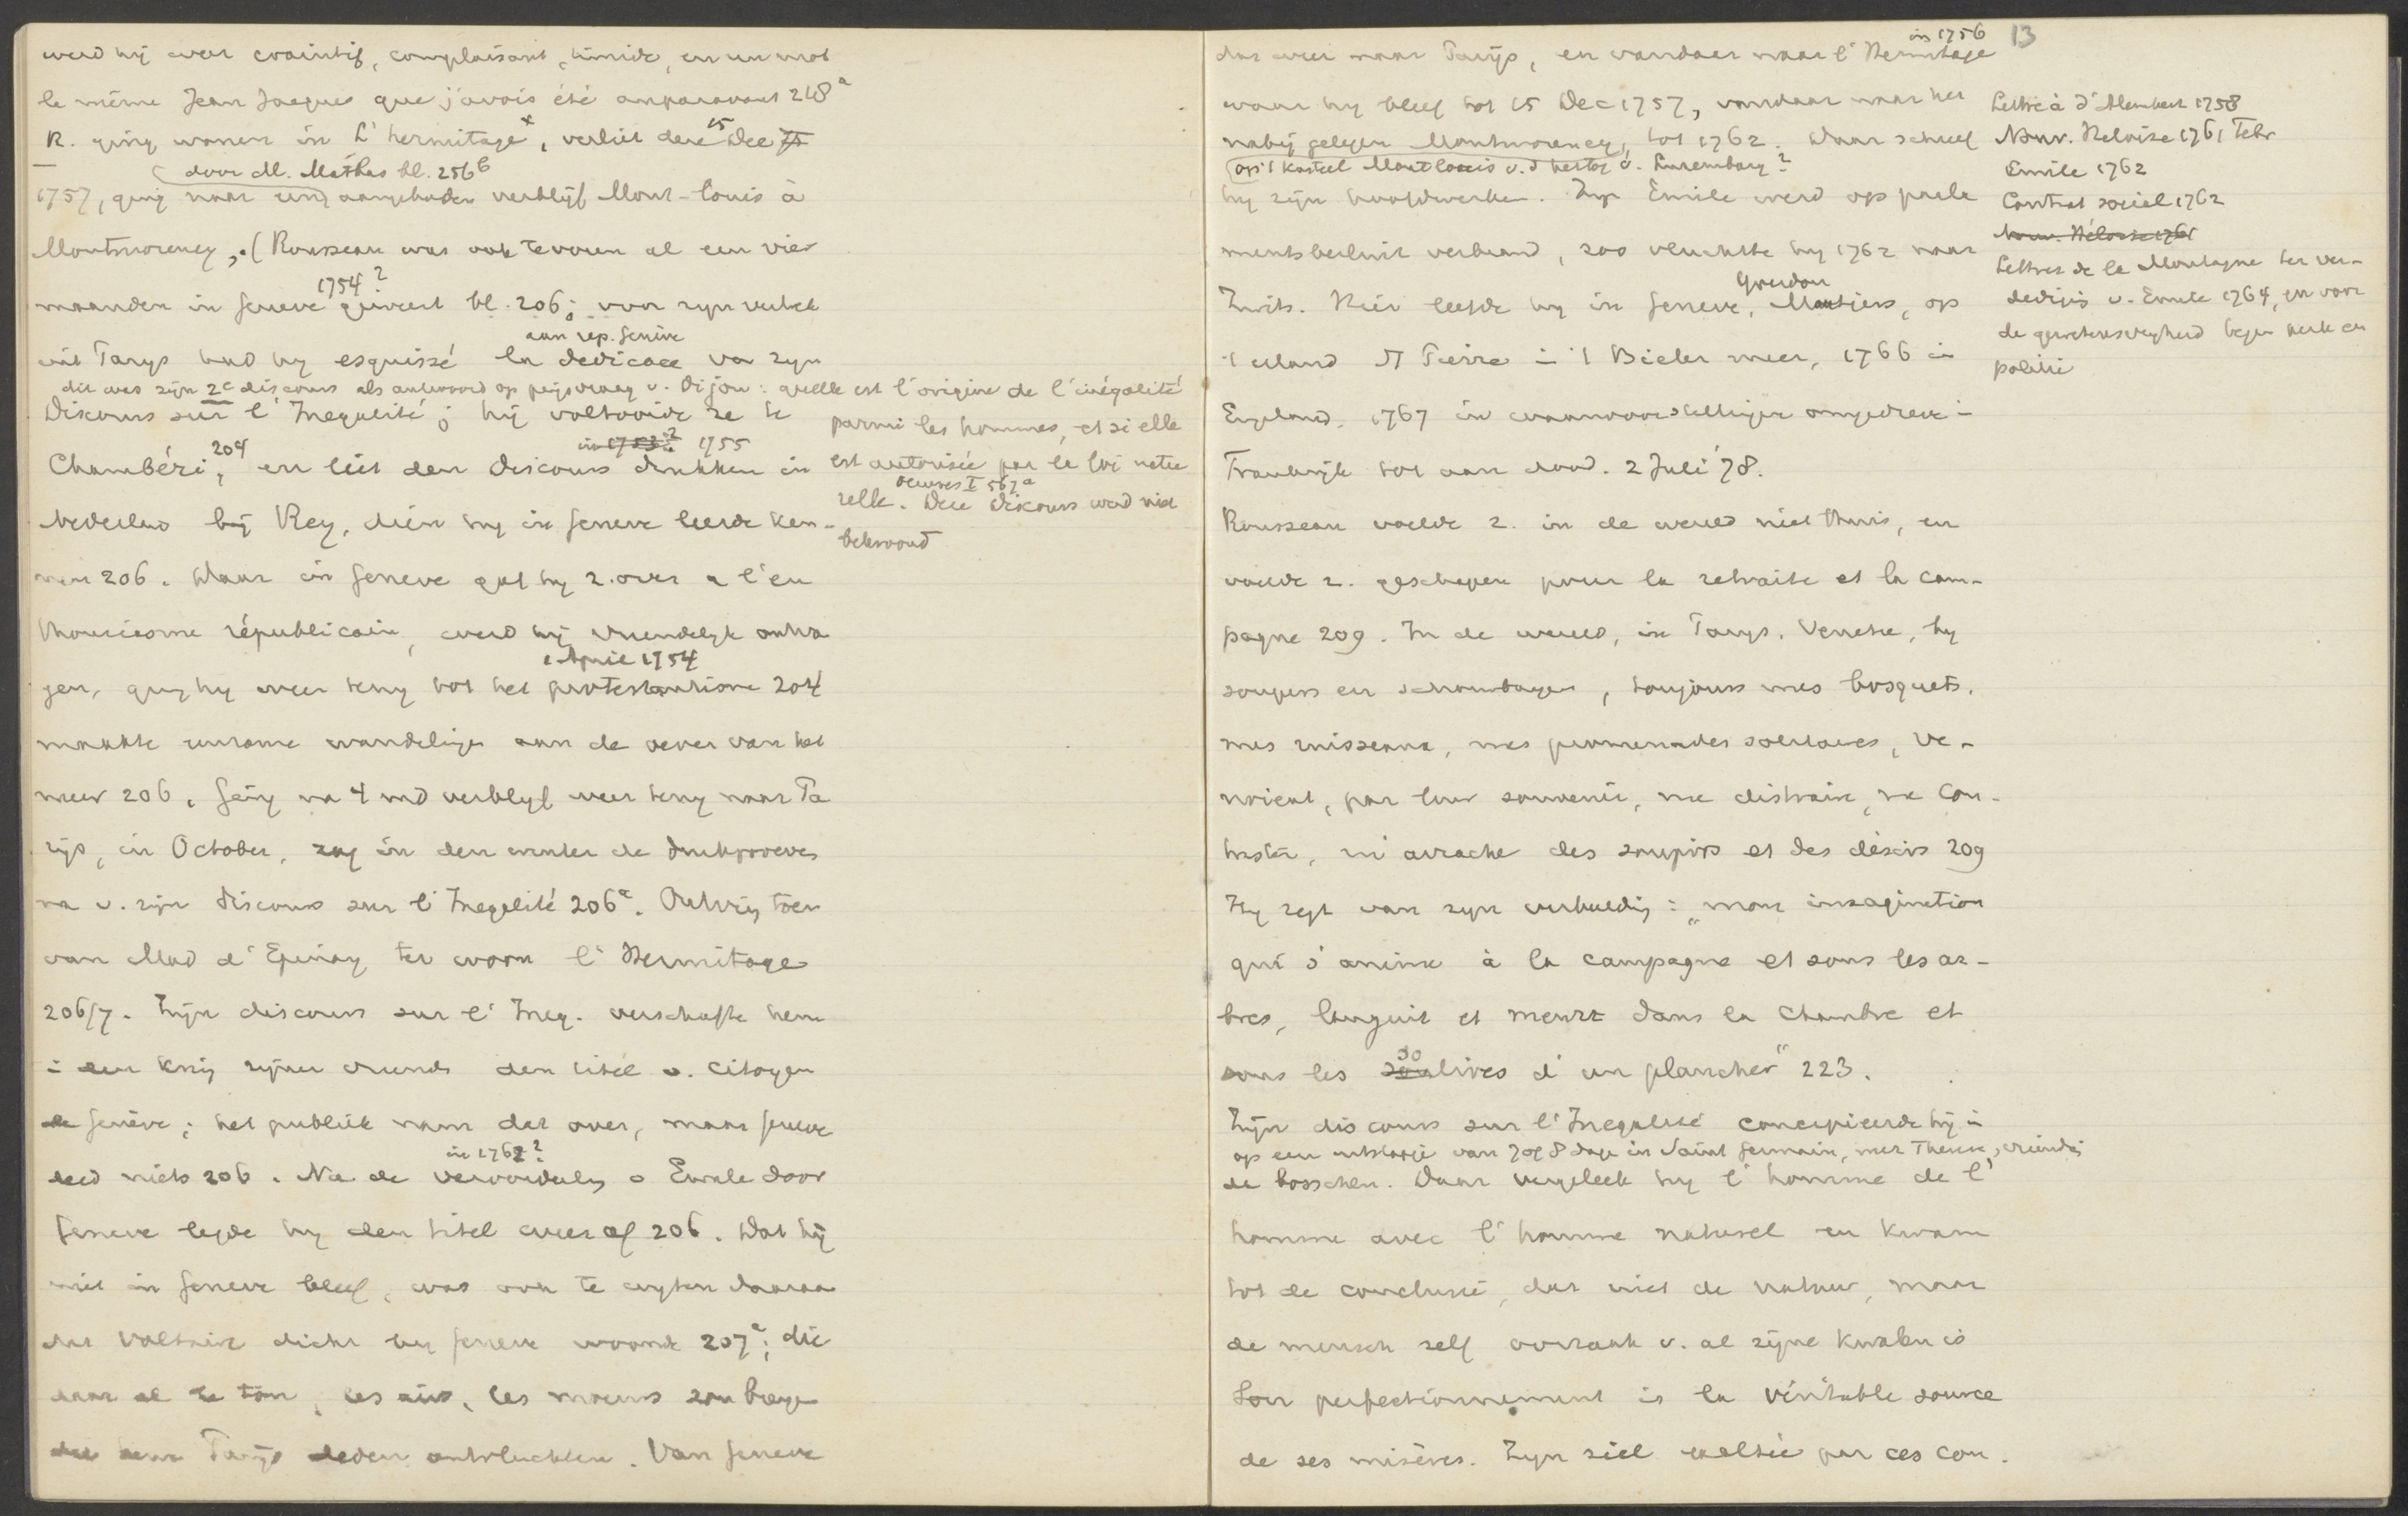 werd hij weer craintif, complaisant, timide, en un mot
le même Jean Jacques que j'avois été auparavant 218a
R. ging wonen in L'hermitage x, verliet deze 15 Dec
door M. Mathas bl. 256b
1757, ging naar een aangeboden verblijf Mont-Louis à
Montmorency, (Rousseau was ook tevoren al een vier
1754?
maanden in Geneve geweest bl. 206; voor zijn vertrek
aan rep. Genève
uit Parijs had hij esquissé la dedicace van zijn
dit was zijn 2e discours als antwoord op prijsvraag v. Dijon: quelle est l'origine de l'inégalité
Discours sur l'Inegalité; hij voltooide ze te
parmi les hommes, et si elle
in 1753? 1755
Chambéri, 204 en liet den Discours drukken in
est autorisée par la loi natu
relle. Oeuvres I 567a Deze Discours werd niet
bekroond
Nederland bij Rey, dien hij in Geneve leerde ken-
nen 206. Maar in Geneve gaf hij z. over a l'en
thousiasme républicain, werd hij vriendelijk ontva
1 April 1954
gen, ging hij weer terug tot het protestantisme 204
maakte eenzame wandelingen aan de oever van het
meer 206. Ging na 4 md verblijf weer terug naar Pa
rijs, in October, zag in den winter de drukproeven
na v. zijn discours sur l'Inegalité 206a. Ontving toen
van Mad d'Epinay ter woon l'Hermitage
206/7. Zijn discours sur l'Ineg. verschafte hem
in den kring zijner vriends den titel v. Citoyen
de Genève; het publiek nam dat over, maar Geneve
in 1762?
deed niets 206. Na de veroordeling v Emile door
Geneve legde hij den titel weer af 206. Dat hij
niet in Geneve bleef, was ook te wijten daaraan
dat Voltaire dicht bij Geneve woonde 207a; die
daar al le ton, les airs, les moeurs zou brengen
die hem Parijs deden ontvluchten. Van Geneve
13
in 1756
dus weer naar Parijs, en vandaar naar l'Hermitage
waar hij bleef tot 15 Dec 1757, vandaar naar het
nabij gelegen Montmorency, tot 1762. Daar schreef
op 't kasteel Montlouis v. d hertog v. Luxemburg?
hij zijn hoofdwerken. Zijn Emile werd op parle
mentsbesluit verbrand, zoo vluchtte hij 1762 naar
Yverdon
Zwits. Hier leefde hij in Geneve, Motiers, op
't eiland St Pierre in 't Bieler meer, 1766 in
Lettre à d'Alembert 1758
Nouv. Heloise 1761 Febr
Emile 1762
Contrat social 1762
Nouv. Héloise 1761
Lettres de la Montagne ter ver-
dediging v. Emile 1764, en voor
de gewetensvrijheid tegen kerk en
politie
Engeland, 1767 in waanvoorstellingen omgedreven in
Frankrijk tot aan dood. 2 Juli 78.
Rousseau voelde z. in de wereld niet thuis, en
voelde z. geschapen pour la retraite et la cam-
pagne 209. In de wereld, in Parijs, Venetie, bij
soupers en schouwburgen, toujours mes bosquets,
mes ruisseaux, mes promenades solitaires, ve-
noient, par leur souvenir, me distraire, me con-
trister, m'arracher des soupirs et des désirs 209
Hij zegt van zijn verbeelding: "mon imagination
qui s'anime à la campagne et sous les ar-
bres, languit et meurt dans la chambre et
sous les solives d'un plancher" 223.
Zijn discours sur l'Inegalité concipieerde hij in
op een uitstapje van 7 of 8 dagen in Saint Germain, met Therese, vriendin
de bosschen. Daar vergeleek hij l'homme de l'
homme avec l'homme naturel en kwam
tot de conclusie, dat niet de natuur, maar
de mensch zelf oorzaak v. al zijne kwalen is
Son perfectionnement is la véritable source
de ses misères. Zijn ziel exaltée par ces con.